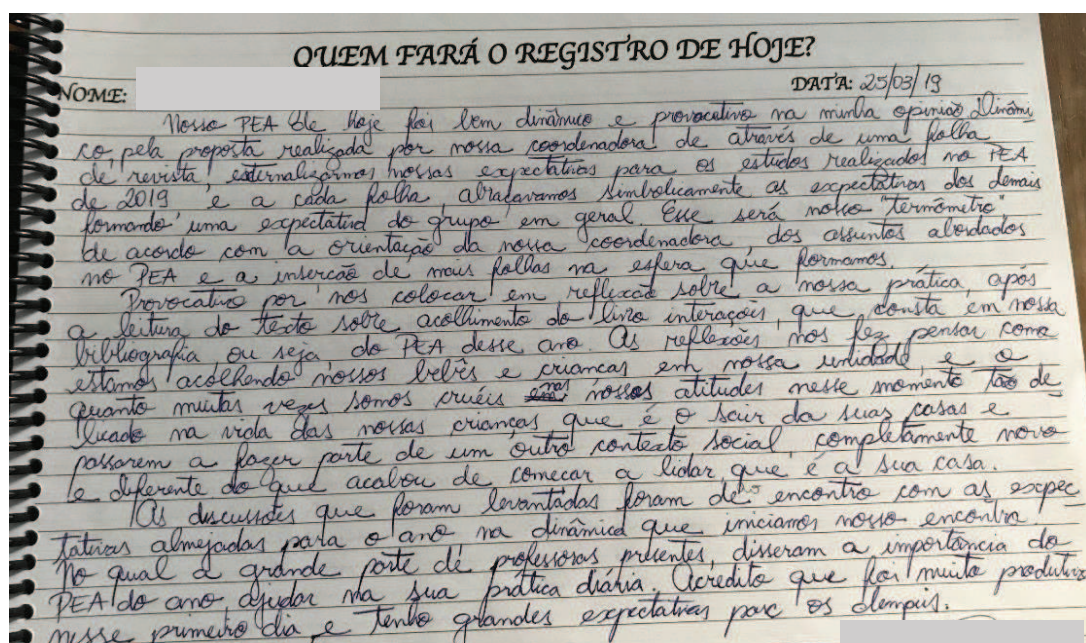 QUEM FARÁ O REGISTRO DE HOJE?
NOME: DATA: 25/03/19
Nosso PEA de hoje foi bem dinâmico e provocativo na minha opinião. Dinâmi
co, pela proposta realizada por nossa coordenadora de através de uma folha
de revista, externalizarmos nossas expectativas para os estudos realizados no PEA
de 2019 e a cada folha, abraçavamos simbolicamente as expectativas dos demais
formando uma expectativa do grupo em geral. Esse será nosso "termômetro"
de acordo com a orientação da nossa coordenadora, dos assuntos abordados
no PEA e a inserção de mais folhas na esfera que formamos.
Provocativo por nos colocar em reflexão sobre a nossa prática, após
a leitura do texto sobre acolhimento do livro interações, que consta em nossa
bibliografia ou seja, do PEA desse ano. As reflexões nos fez pensar como
estamos acolhendo nossos bebês e crianças em nossa unidade, e o
quanto muitas vezes somos cruéis nas nossas atitudes nesse momento tão de
licado na vida das nossas crianças que é o sair da suas casas e
passarem a fazer parte de um outro contexto social, completamente novo
e diferente do que acabou de começar a lidar, que é a sua casa.
As discussões que foram levantadas foram de encontro com as expec
tativas almejadas para o ano na dinâmica que iniciamos nosso encontro.
No qual a grande parte de professoras presentes, disseram a importância do
PEA do ano, ajudar na sua prática diária. Acredito que foi muito produtivo
nesse primeiro dia, e tenho grandes expectativas para os demais.